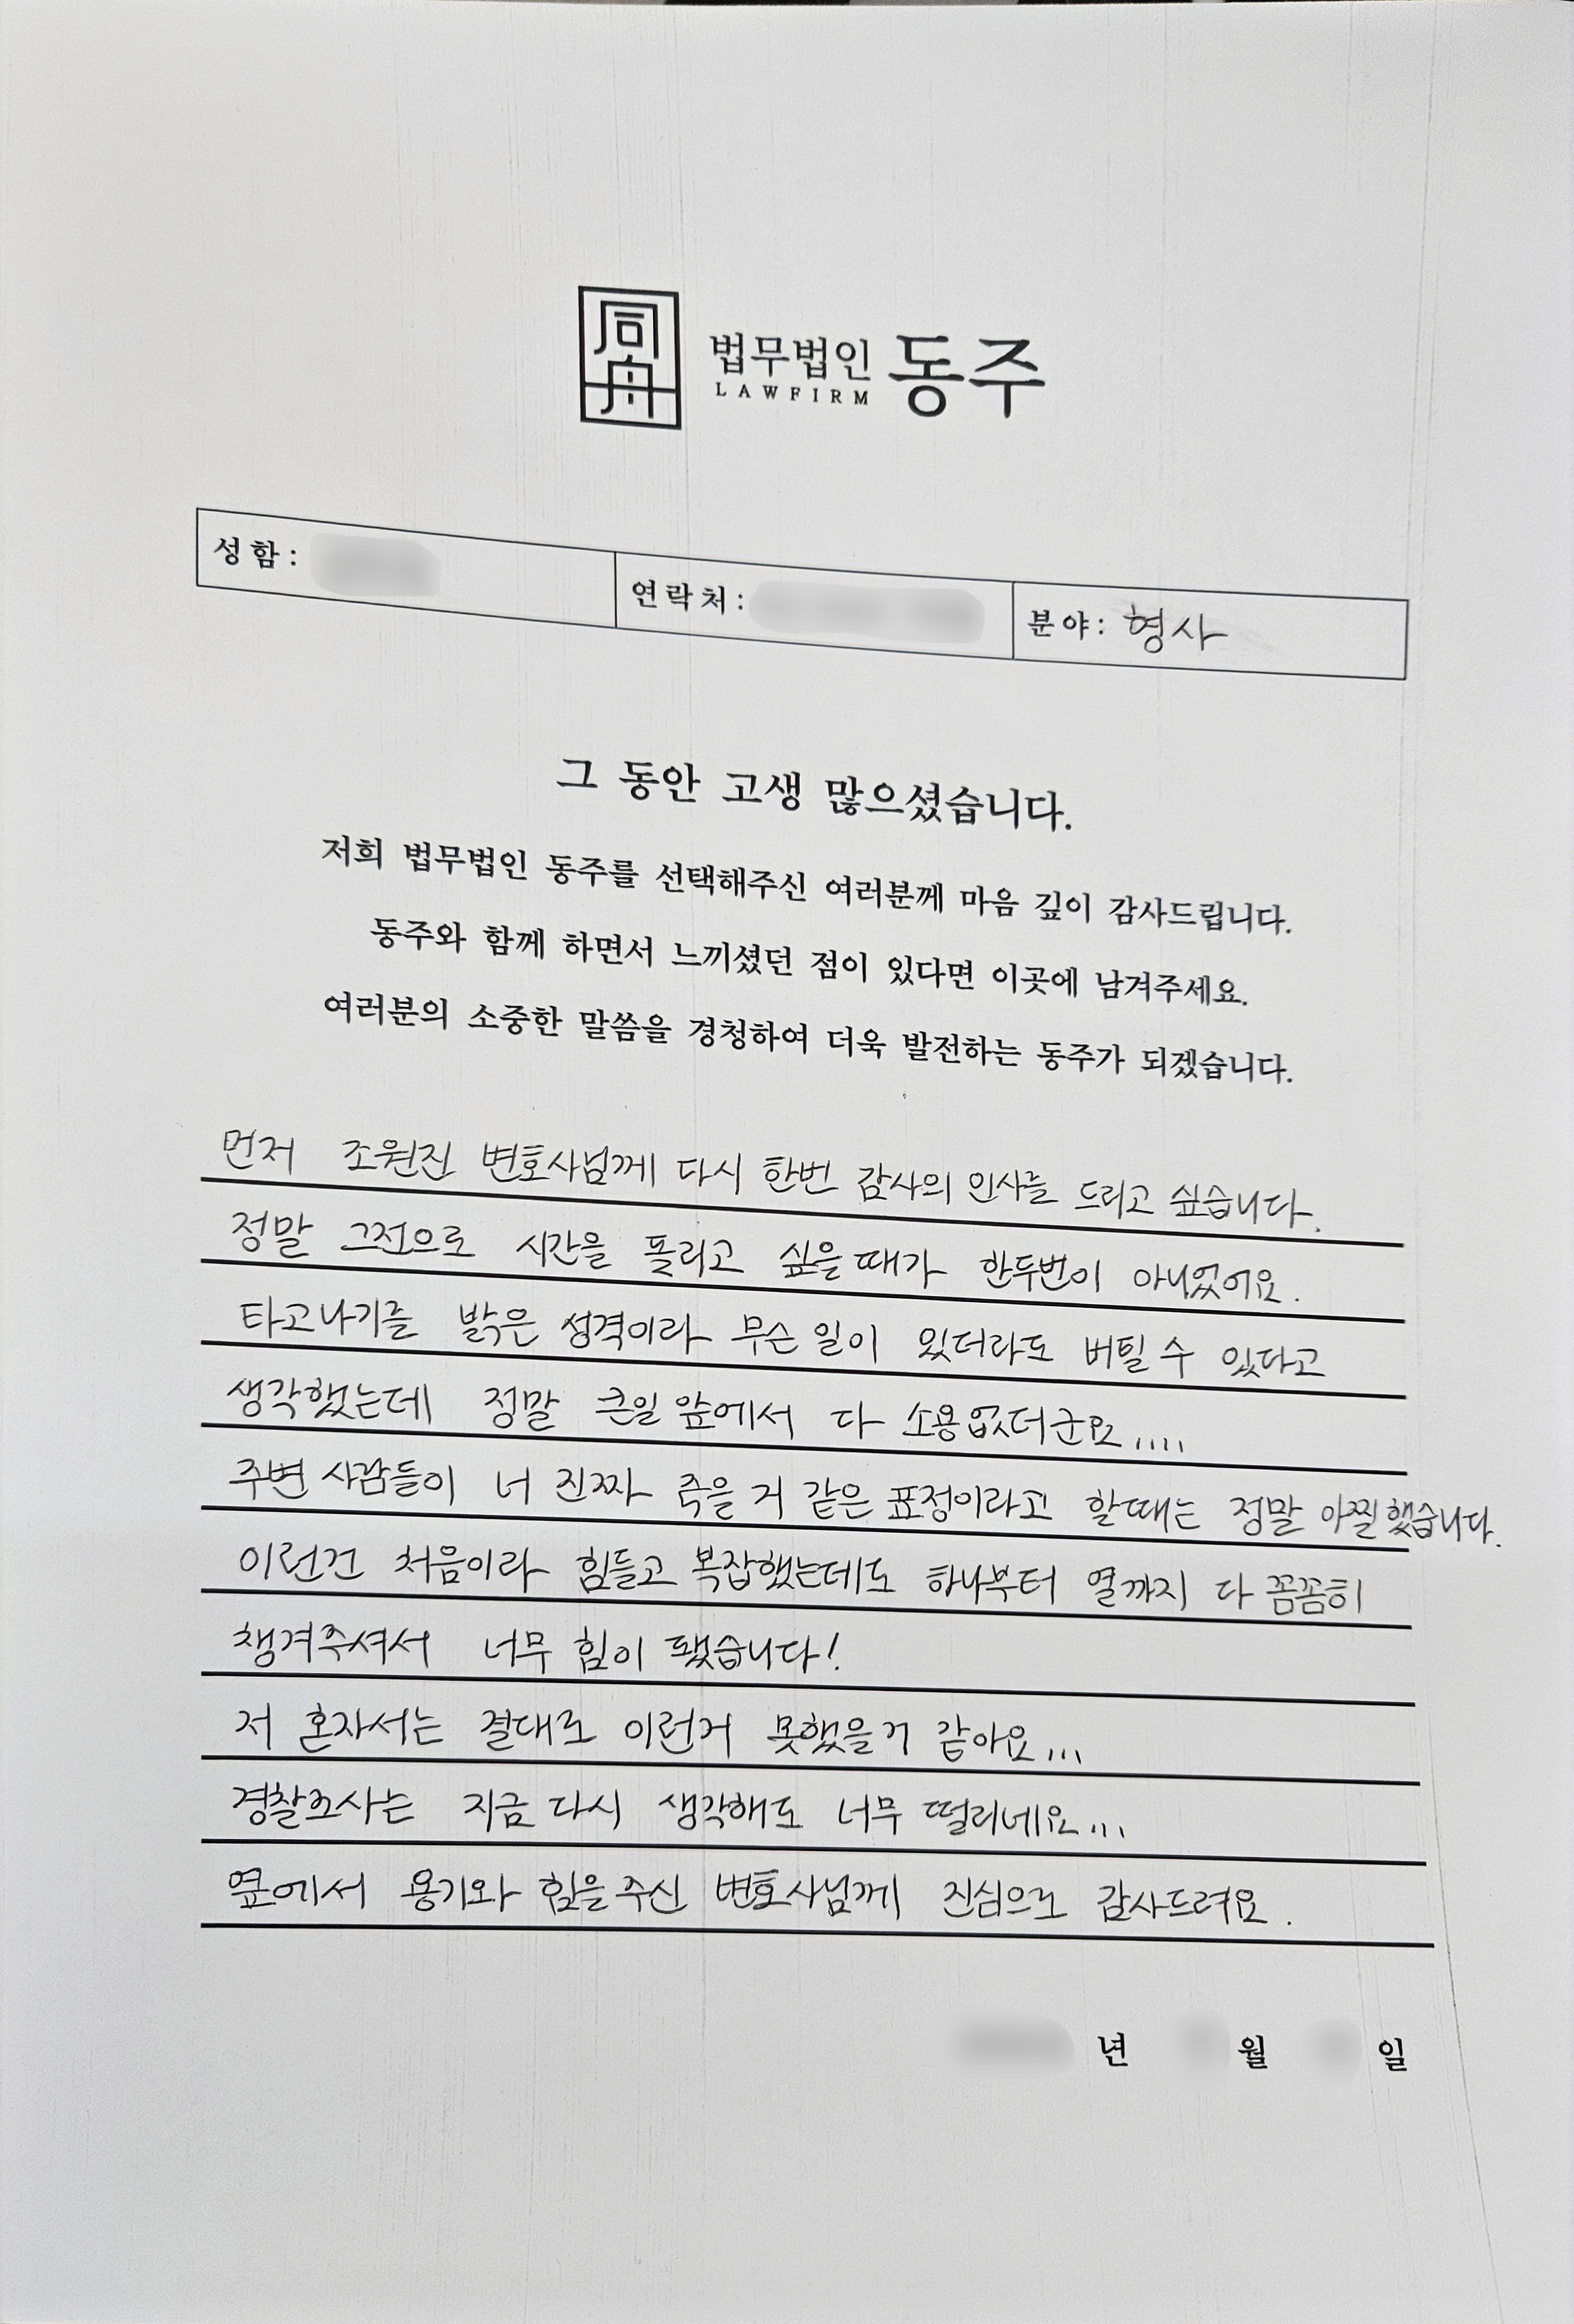 同舟 법무법인 동주
LAWFIRM
성함: 연락처: 분야: 형사
그 동안 고생 많으셨습니다.
저희 법무법인 동주를 선택해주신 여러분께 마음 깊이 감사드립니다.
동주와 함께 하면서 느끼셨던 점이 있다면 이곳에 남겨주세요.
여러분의 소중한 말씀을 경청하여 더욱 발전하는 동주가 되겠습니다.
먼저 조원진 변호사님께 다시 한번 감사의 인사를 드리고 싶습니다.
정말 그전으로 시간을 돌리고 싶을때가 한두번이 아니었어요.
타고나기를 밝은 성격이라 무슨 일이 있더라도 버틸 수 있다고
생각했는데 정말 큰일 앞에서 다 소용없더군요....
주변 사람들이 너 진짜 죽을 거 같은 표정이라고 할때는 정말 아찔했습니다.
이런건 처음이라 힘들고 복잡했는데도 하나부터 열까지 다 꼼꼼히
챙겨주셔서 너무 힘이 됐습니다!
저 혼자서는 절대로 이런거 못했을거 같아요...
경찰조사는 지금 다시 생각해도 너무 떨리네요...
옆에서 용기와 힘을 주신 변호사님께 진심으로 감사드려요.
년 월 일